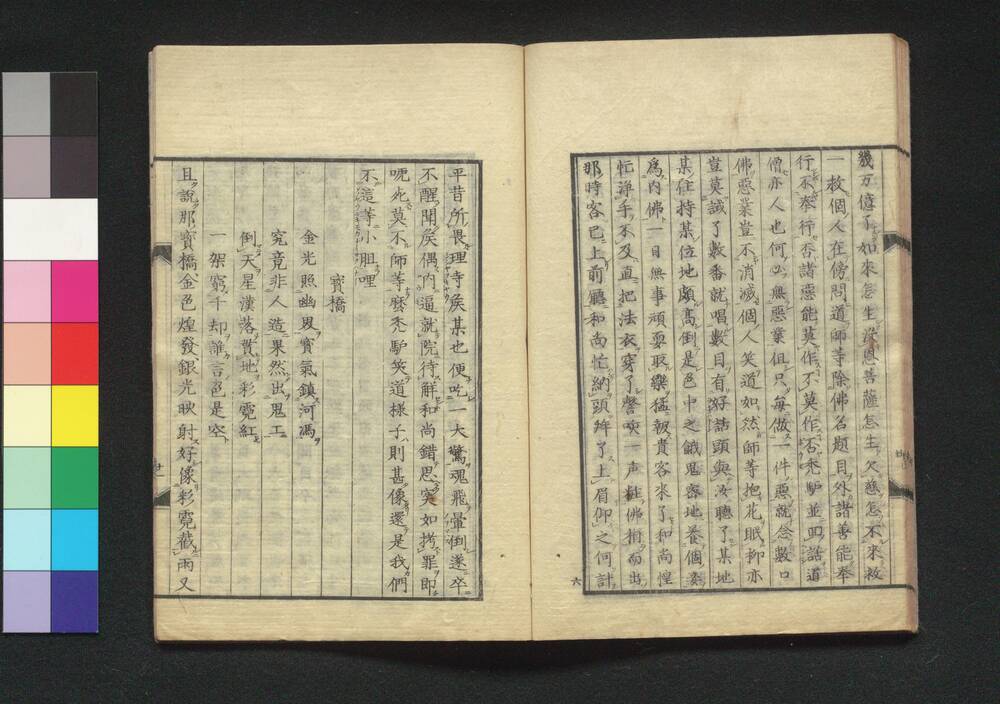 幾万億了如來怎生深恩菩薩怎生大慈怎不來救
一枚個人在傍問道師等除佛名題目外諸善能奉
行不奉行否諸惡能莫作不莫作否禿驢並四諾道
僧亦人也何必無惡業但只每做一件惡就念數口
佛惡業豈不消滅個人笑道如然師等抱花眠柳亦
豈莫誡了數番就唱數目有好話頭與汝聽了某地
某住持某位地頗高倒是色中之餓鬼密地養個妾
為内佛一日無事頑耍取樂猛報貴客來了和尚惶
忙淨手不及直把法衣穿了謦咳一声柱佛樹而出
那時客已上前廳和尚忙納頭拜了上眉仰之何計
平昔所畏理寺侯某也便吃一大驚魂飛暈倒遂卒
不醒聞侯偶内逼就院待解和尚錯思突如拷罪即
呃死莫不師等麼禿驢笑道樣子則甚像還是我們
不這等小胆哩
寳橋
金光照幽思寳氣鎮河馮
究竟非人造果然出鬼工
倒天星漢落貫地彩霓紅
一架窮千却誰言色是空
且說那寳橋金色煌發銀光映射好像彩霓截雨又
六